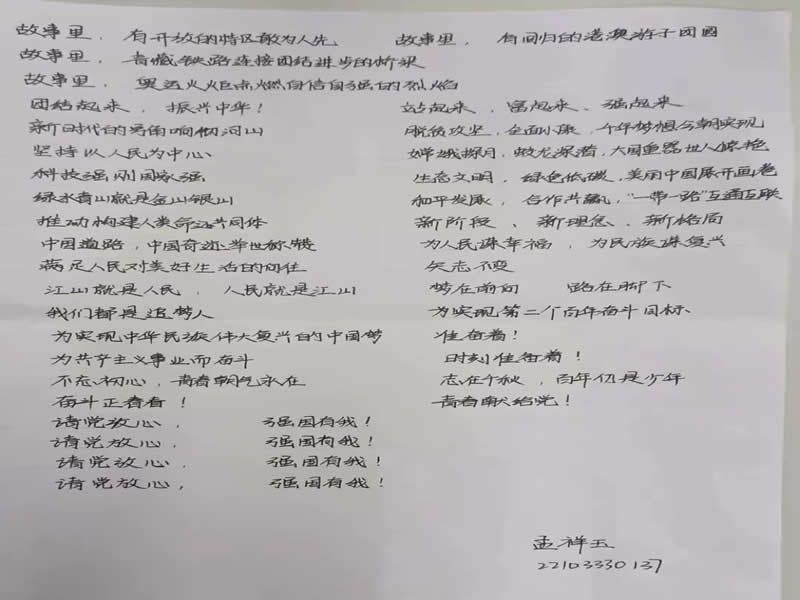 故事里，有开放的特区敢为人先　故事里，有回归的港澳游子团圆
故事里，青藏铁路连接团结进步的桥梁
故事里，奥运火炬点燃自信自强的烈焰
团结起来，振兴中华！　站起来、富起来、强起来
新时代的号角响彻河山　脱贫攻坚，全面小康，千年梦想今朝实现
坚持以人民为中心　嫦娥探月，蛟龙深潜，大国重器世人惊艳
科技强则国家强　生态文明，绿色低碳，美丽中国展开画卷
绿水青山就是金山银山　和平发展，合作共赢，“一带一路”互通互联
推动构建人类命运共同体　新阶段、新理念、新格局
中国道路，中国奇迹举世称赞　为人民谋幸福，为民族谋复兴
满足人民对美好生活的向往　矢志不变
江山就是人民，人民就是江山　梦在前方　路在脚下
我们都是追梦人　为实现第二个百年奋斗目标、
为实现中华民族伟大复兴的中国梦　准备着！
为共产主义事业而奋斗　时刻准备着！
不忘初心，青春朝气永在　志在千秋，百年仍是少年
奋斗正青春！　青春献给党！
请党放心，强国有我！
请党放心，强国有我！
请党放心，强国有我！
请党放心，强国有我！
孟祥玉
22103330137